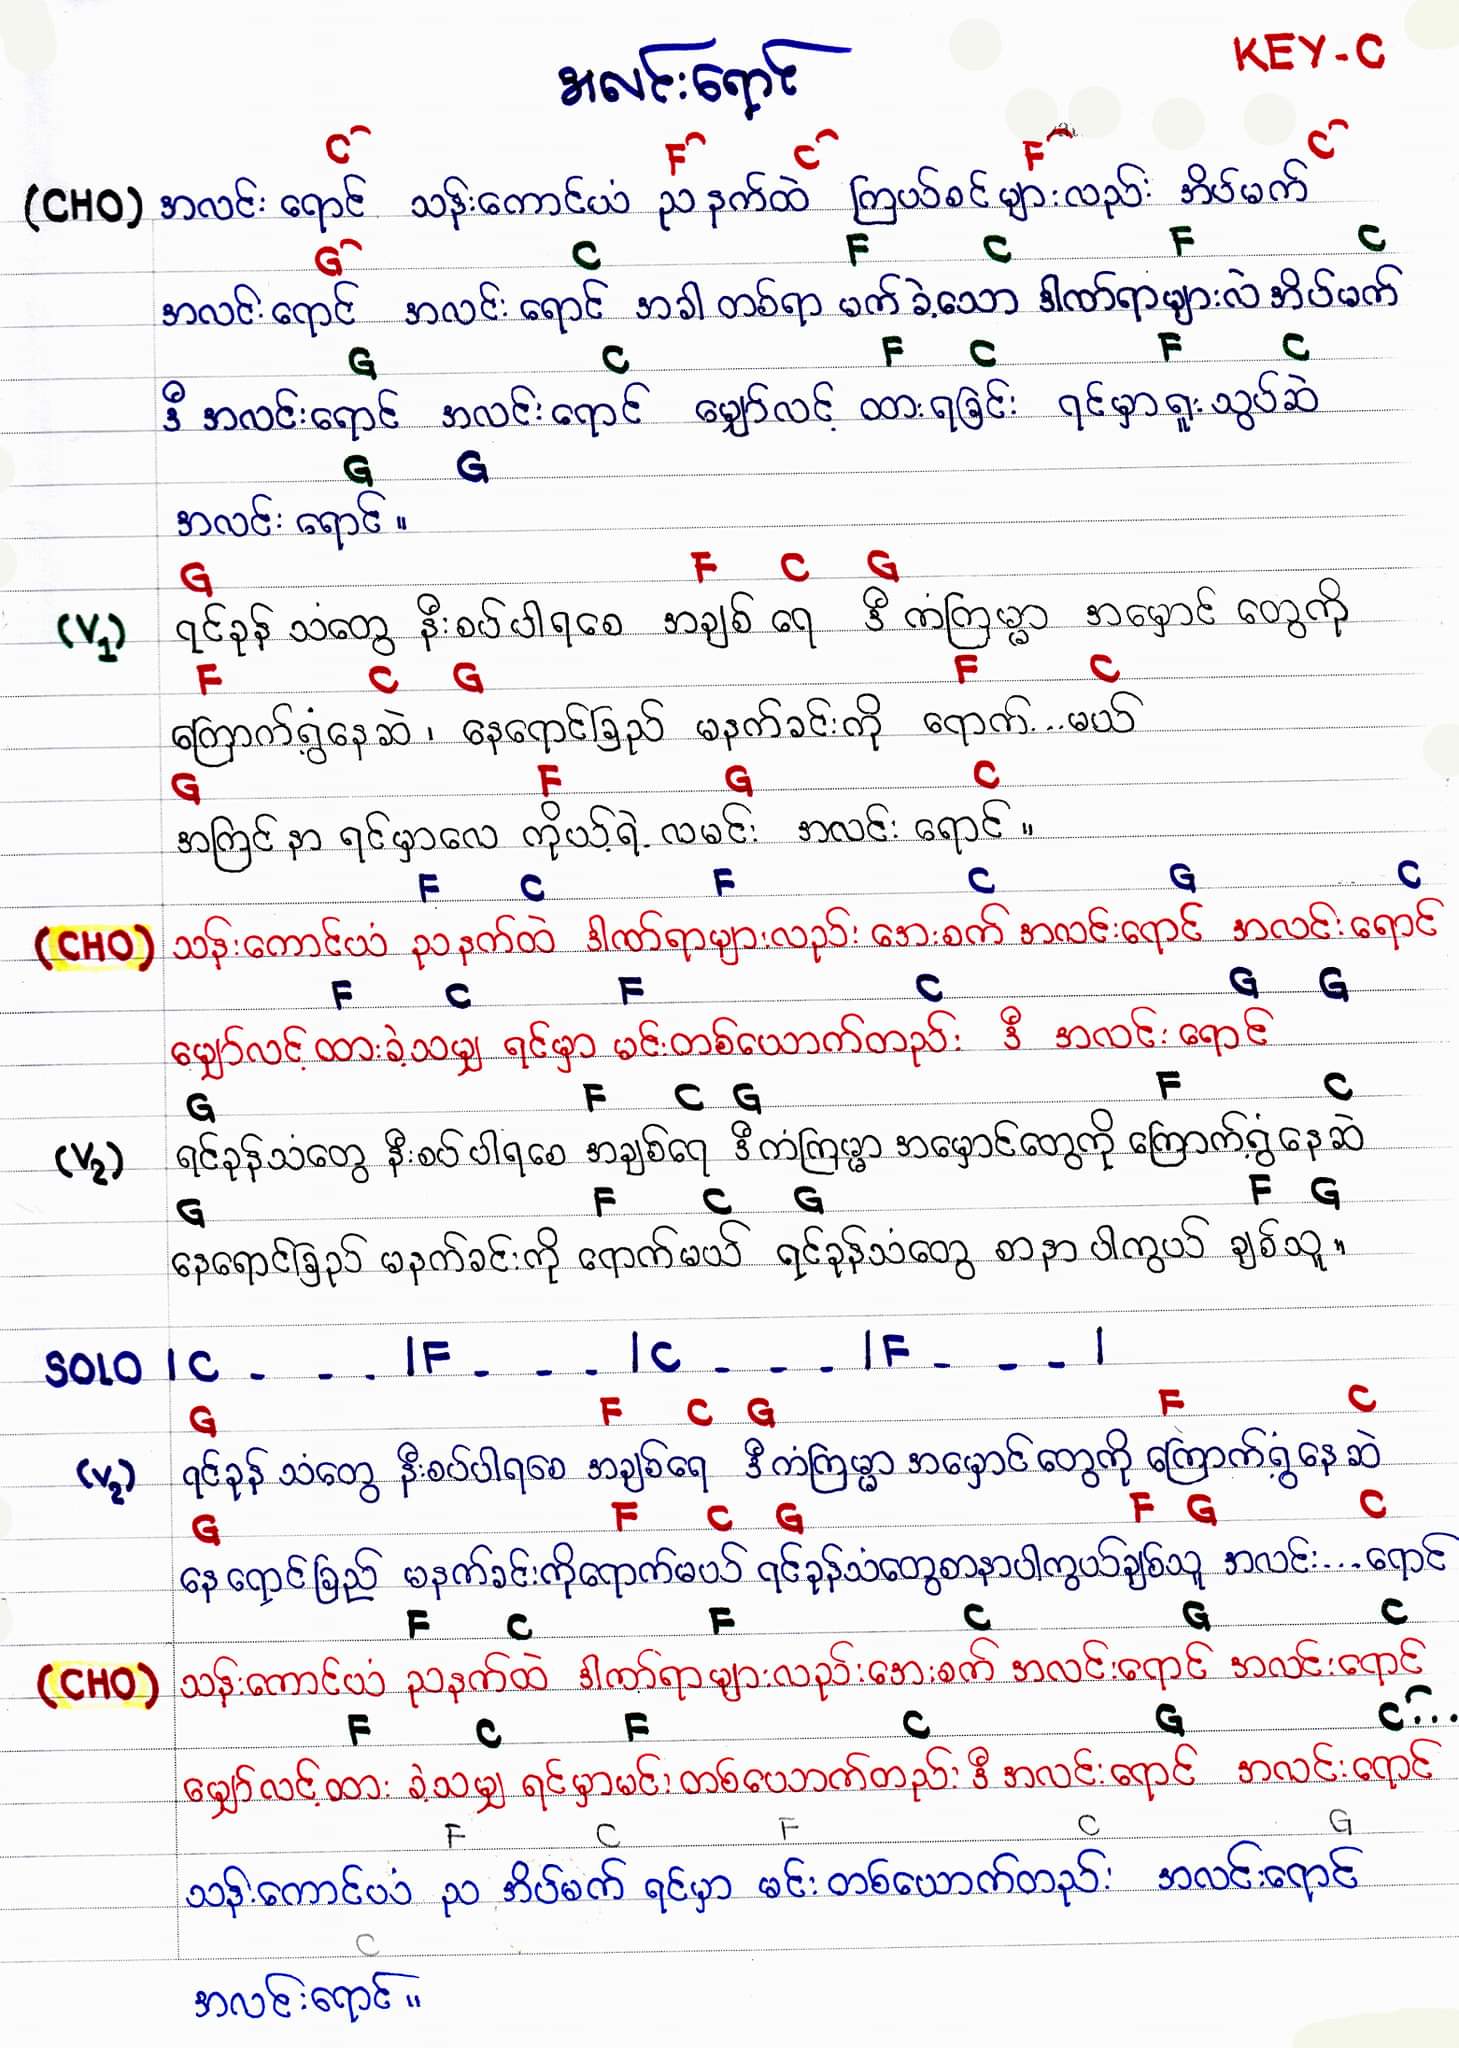 KEY-C
အလင်းရောင်
C F C F C
(CHO) အလင်း ရောင် သန်းကောင်ယံ ညနက်ထဲ ကြယ်စင်များလည်း အိပ်မက်
G C F C F C
အလင်းရောင် အလင်းရောင် အခါတစ်ရာ မက်ခဲ့သော ဒါဏ်ရာများလဲ အိပ်မက်
G C F C F C
ဒီ အလင်းရောင် အလင်းရောင် မျှော်လင့် ထားရခြင်း ရင်မှာရူးသွပ်ဆဲ
G G
အလင်း ရောင်။
G F C G
(V1) ရင်ခုန်သံတွေ နီးစပ်ပါရစေ အချစ်ရေ ဒီကံကြမ္မာ အမှောင်တွေကို
F C G F C
ကြောက်ရွံ့နေဆဲ၊ နေရောင်ခြည် မနက်ခင်းကို ရောက်...မယ်
G F G C
အကြင်နာ ရင်မှာလေ ကိုယ့်ရဲ့ လမင်း အလင်းရောင်။
F C F C G C
(CHO) သန်းကောင်ယံ ညနက်ထဲ ဒါဏ်ရာများလည်း အေးစက် အလင်းရောင် အလင်းရောင်
F C F C G G
မျှော်လင့်ထားခဲ့သမျှ ရင်မှာ မင်းတစ်ယောက်တည်း ဒီ အလင်းရောင်
G F C G F C
(V2) ရင်ခုန်သံတွေ နီးစပ်ပါရစေ အချစ်ရေ ဒီကံကြမ္မာ အမှောင်တွေကို ကြောက်ရွံ့နေဆဲ
G F C G F G
နေရောင်ခြည် မနက်ခင်းကို ရောက်မယ် ရင်ခုန်သံတွေ စာနာပါကွယ် ချစ်သူ။
SOLO | C - - - | F - - - | C - - - | F - - - |
G F C G F C
(V2) ရင်ခုန်သံတွေ နီးစပ်ပါရစေ အချစ်ရေ ဒီကံကြမ္မာ အမှောင်တွေကို ကြောက်ရွံ့နေဆဲ
G F C G F G C
နေရောင်ခြည် မနက်ခင်းကိုရောက်မယ် ရင်ခုန်သံတွေစာနာပါကွယ်ချစ်သူ အလင်း...ရောင်
F C F C G C
(CHO) သန်းကောင်ယံ ညနက်ထဲ ဒါဏ်ရာများလည်းအေးစက် အလင်းရောင် အလင်းရောင်
F C F C G C...
မျှော်လင့်ထား ခဲ့သမျှ ရင်မှာမင်းတစ်ယောက်တည်း ဒီအလင်းရောင် အလင်းရောင်
F C F C G
သန်းကောင်ယံ ည အိပ်မက် ရင်မှာ မင်းတစ်ယောက်တည်း အလင်းရောင်
C
အလင်းရောင်။